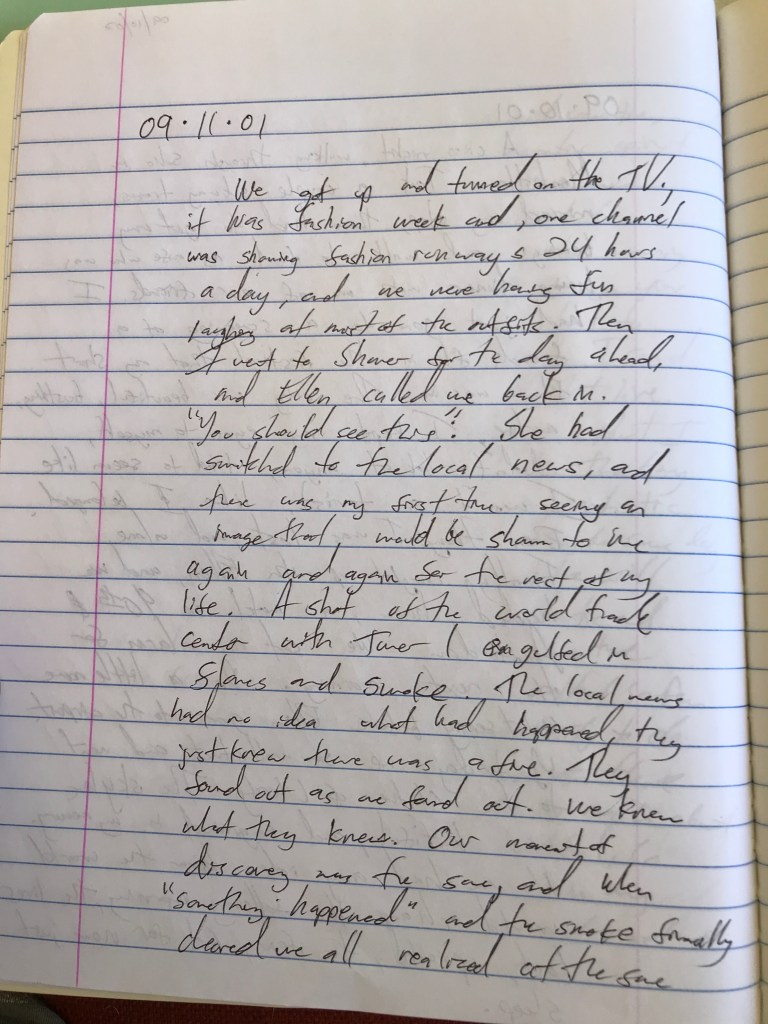 09.11.01
We got up and turned on the TV,
it was fashion week and, one channel
was showing fashion runways 24 hours
a day, and we were having fun
laughing at most of the outfits. Then
I went to shower for the day ahead,
and Ellen called me back in.
"You should see this". She had
switched to the local news, and
there was my first time seeing an
image that, would be shown to me
again and again for the rest of my
life. A shot of the world trade
center with Tower 1 engulfed in
flames and smoke. The local news
had no idea what had happened, they
just knew there was a fire. They
found out as we found out. We knew
what they knew. Our moment of
discovery was the same, and when
"something happened" and the smoke finally
cleared we all realized at the same